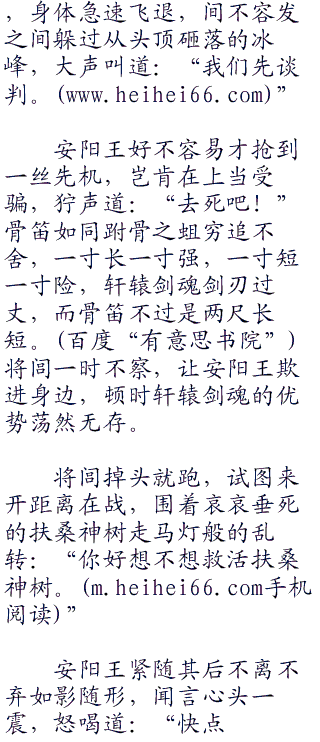 ，身体急速飞退，间不容发
之间躲过从头顶砸落的冰
峰，大声叫道：“我们先谈
判。(www.heihei66.com)”
安阳王好不容易才抢到
一丝先机，岂肯在上当受
骗，狞声道：“去死吧！”
骨笛如同跗骨之蛆穷追不
舍，一寸长一寸强，一寸短
一寸险，轩辕剑魂剑刃过
丈，而骨笛不过是两尺长
短。(百度“有意思书院”)
将闾一时不察，让安阳王欺
进身边，顿时轩辕剑魂的优
势荡然无存。
将闾掉头就跑，试图来
开距离在战，围着哀哀垂死
的扶桑神树走马灯般的乱
转：“你好想不想救活扶桑
神树。(m.heihei66.com手机
阅读)”
安阳王紧随其后不离不
弃如影随形，闻言心头一
震，怒喝道：“快点